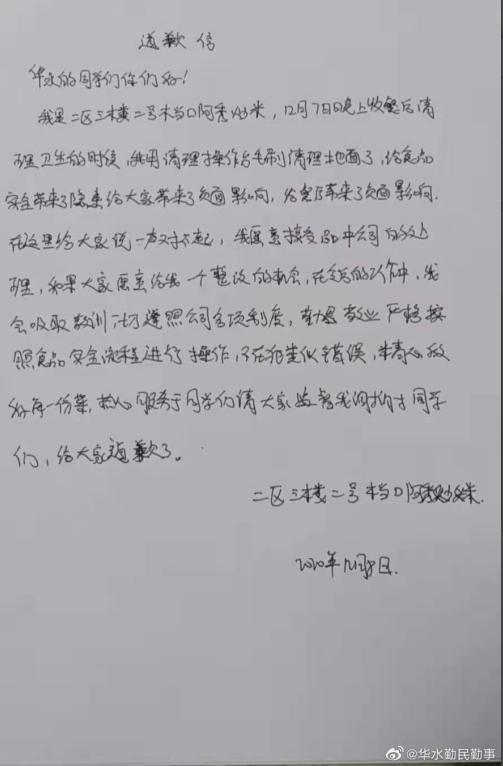 道歉信
华水的同学们你们好!
我是二区三楼二号档口阿秀炒米,12月7日晚上收餐后清
理卫生的时候,我用清理操作台毛刷清理地面了,给食品
安全带来了隐患给大家带来了负面影响,给党后带来了负面影响.
在这里给大家说一声对不起,我愿意接受品中公司的处
理,如果大家愿意给我一个整改的机会,在今后的工作中,我
会吸取教训一切遵照公司各项制度,爱岗敬业严格按
照食品安全流程进行操作,不在犯类似错误,精心做
好每一份菜,热心服务于同学们请大家监督我们
们,给大家道歉了。
二区三楼二号档口阿秀炒米.
2020年12月8日.
@华水勤民勤事